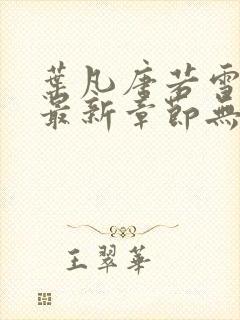 葉凡唐若雪
最新章節無
王翠華